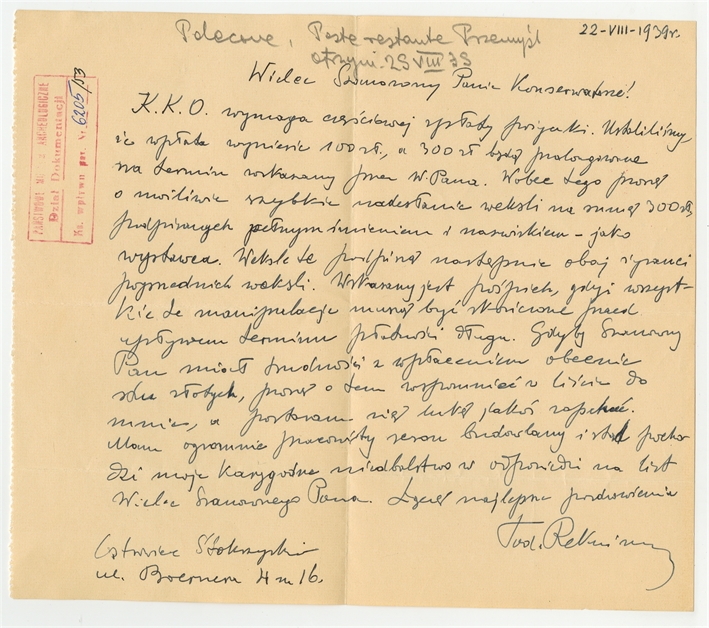 22-VIII-1939r.
Polecone, Poste restante Przemyśl
otrzym. 25 VIII 39
Wielce Szanowny Panie Konserwatorze!
K.K.O. wymaga częściowej spłaty pożyczki. Ustaliliśmy,
że wpłata wyniesie 100 zł, a 300 zł będą prolongowane
na termin wskazany przez W. Pana. Wobec tego proszę
o możliwie szybkie nadesłanie weksli na sumę 300 zł,
podpisanych pełnym imieniem i nazwiskiem – jako
wystawca. Weksle te podpiszą następnie obaj żyranci
poprzednich weksli. Wskazany jest pośpiech, gdyż wszyst-
kie te manipulacje muszą być skończone przed
upływem terminu płatności długu. Gdyby Szanowny
Pan miał trudności z wpłaceniem obecnie
stu złotych, proszę o tem wspomnieć w liście do
mnie, a postaram się lukę jakoś zapchać.
Mam ogromnie pracowity sezon budowlany i stąd pocho-
dzi moje karygodne niedbalstwo w odpowiedzi na list
Wielce Szanownego Pana. Łączę najlepsze pozdrowienia
Tad.
Ostrowiec Świętokrzyski
ul. Boernera 4 m 16.
PAŃSTWOWE ARCHEOLOGICZNE
Dział Dokumentacji
Ks. wpływu poz. Nr. 6205/53